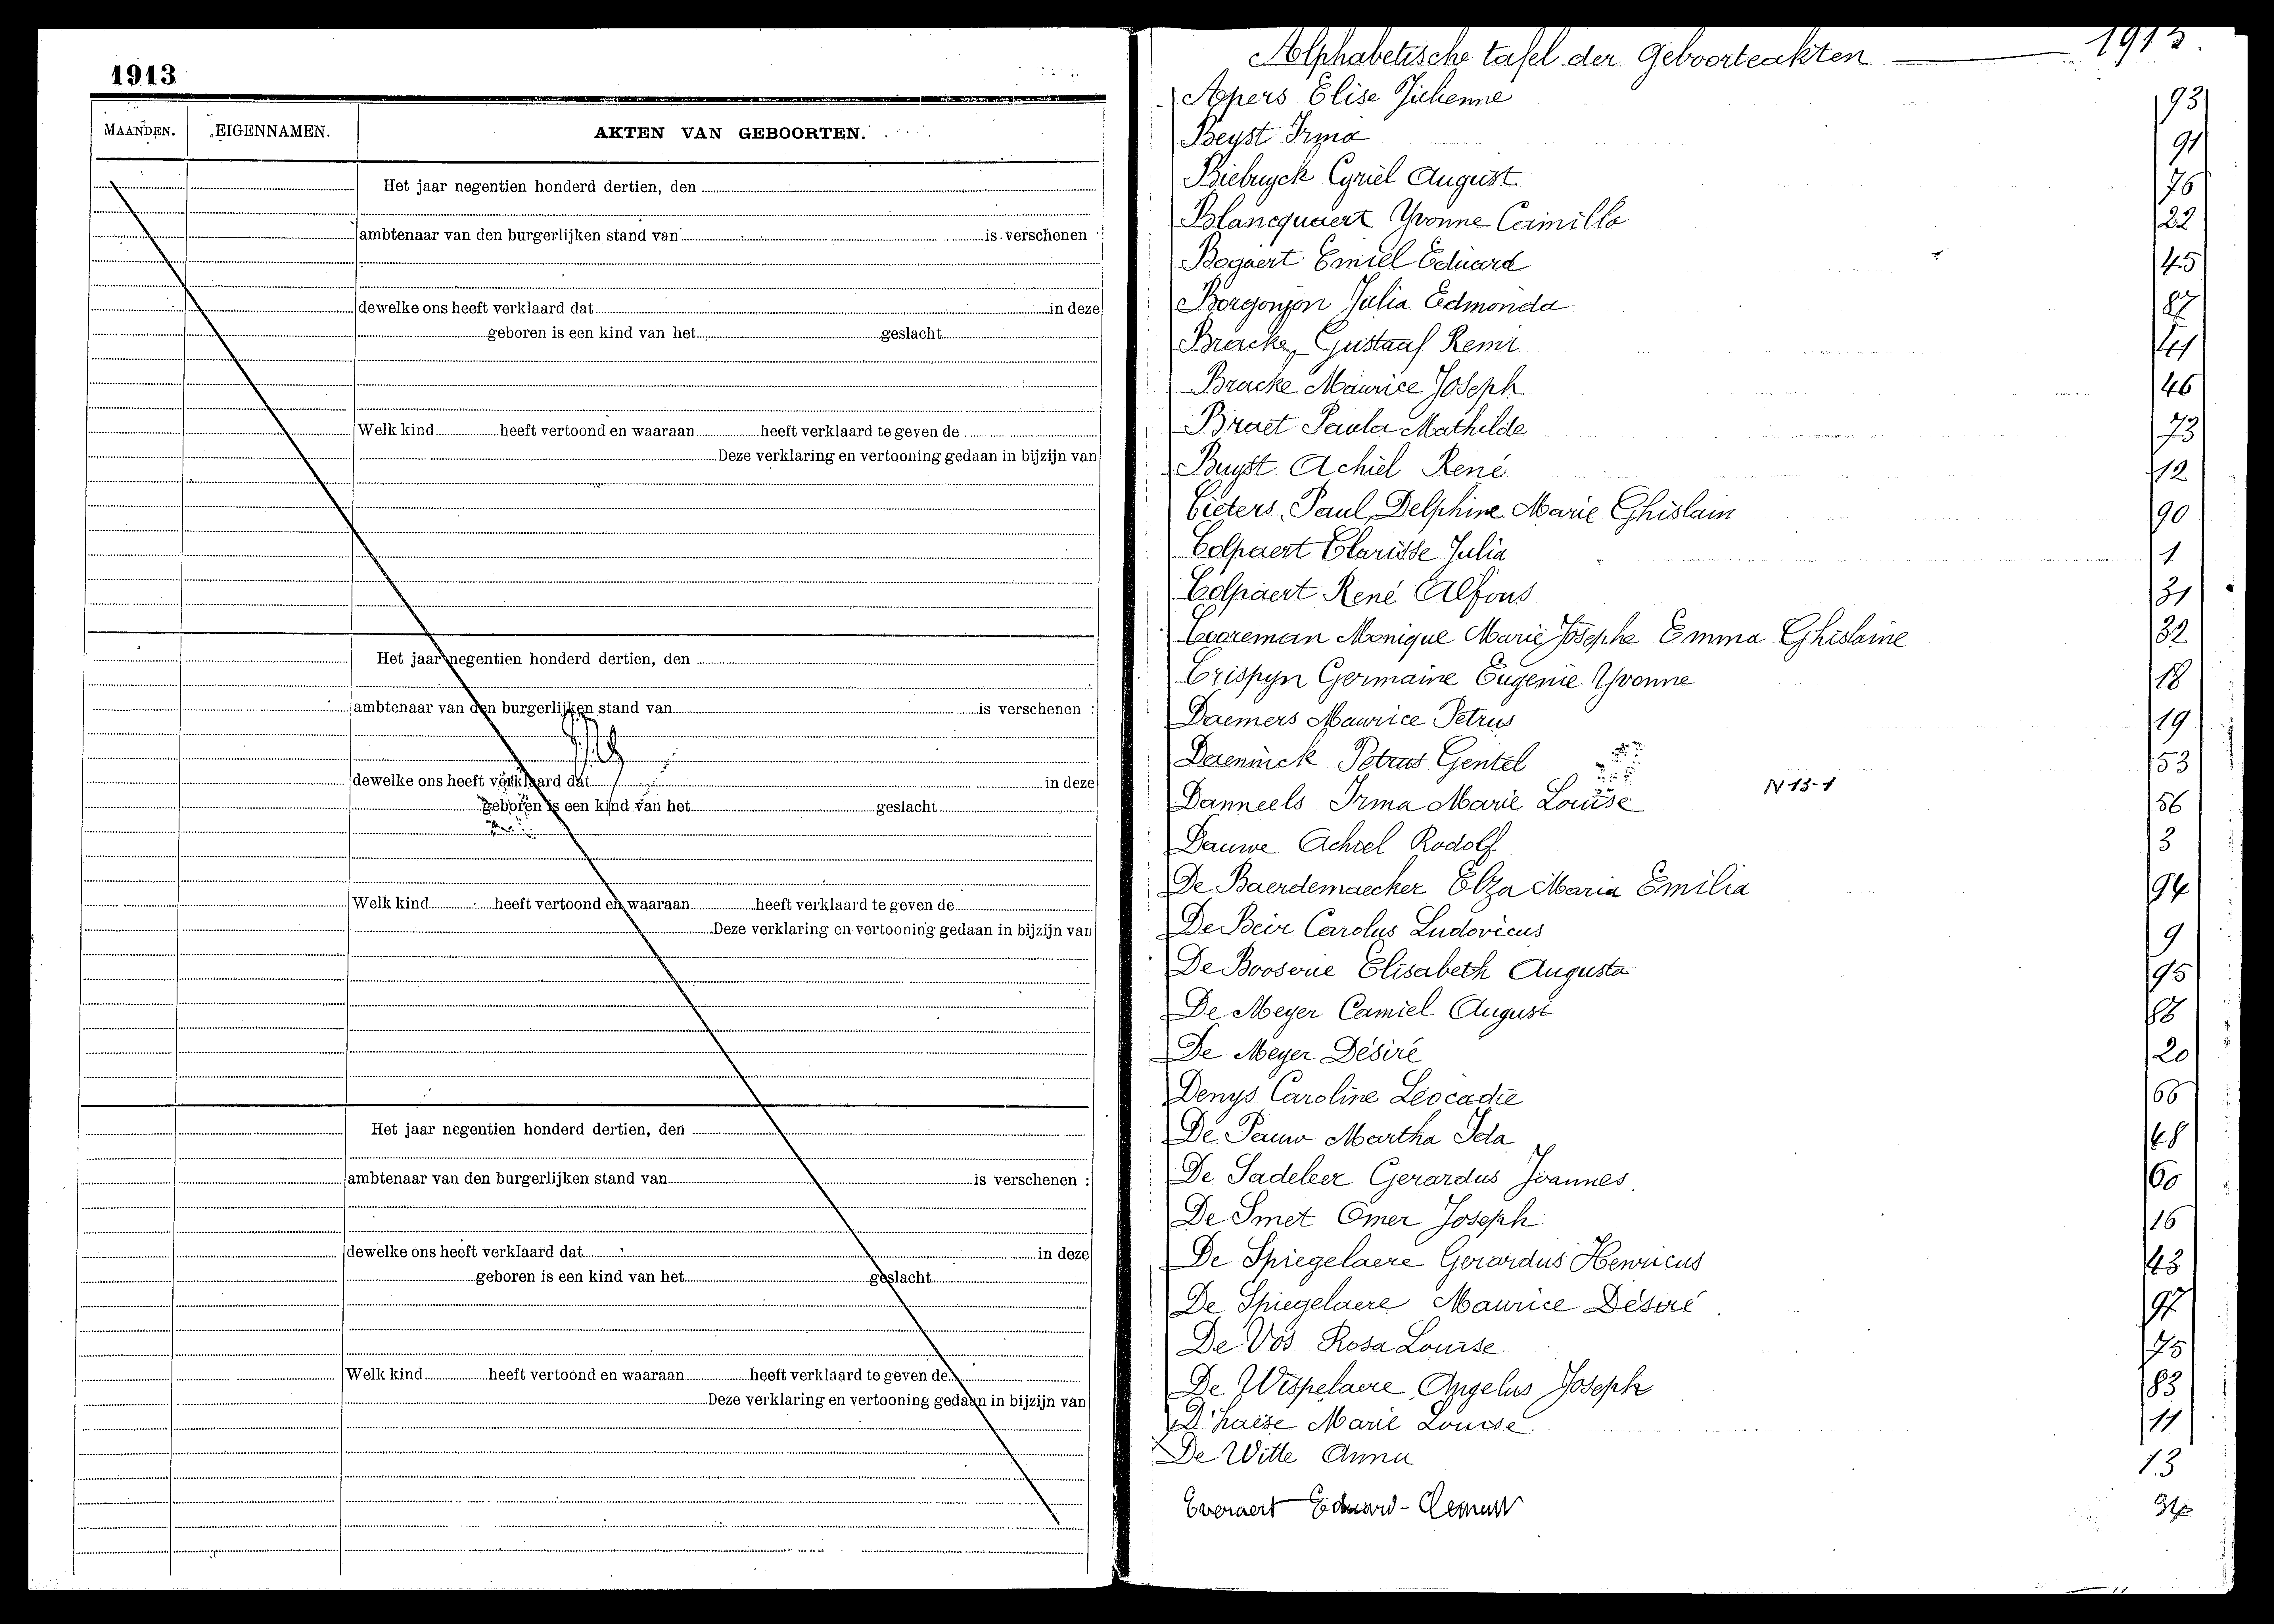 1913
MAANDEN. EIGENNAMEN. AKTEN VAN GEBOORTEN.
Het jaar negentien honderd dertien, den
ambtenaar van den burgerlijken stand van is verschenen :
dewelke ons heeft verklaard dat in deze
geboren is een kind van het geslacht
Welk kind heeft vertoond en waaraan heeft verklaard te geven de
Deze verklaring en vertooning gedaan in bijzijn van
Het jaar negentien honderd dertien, den
ambtenaar van den burgerlijken stand van is verschenen :
dewelke ons heeft verklaard dat in deze
geboren is een kind van het geslacht
Welk kind heeft vertoond en waaraan heeft verklaard te geven de
Deze verklaring en vertooning gedaan in bijzijn van
Het jaar negentien honderd dertien, den
ambtenaar van den burgerlijken stand van is verschenen :
dewelke ons heeft verklaard dat in deze
geboren is een kind van het geslacht
Welk kind heeft vertoond en waaraan heeft verklaard te geven de
Deze verklaring en vertooning gedaan in bijzijn van
Alphabetische tafel der Geboorteakten — 1913.
Apers Elise Julienne 93
Beyst Irma 91
Biebuyck Cyriel August 76
Blancquaert Yvonne Camilla 22
Bogaert Emiel Eduard 45
Borgonjon Julia Edmonda 87
Bracke, Gustaaf Remi 41
Bracke Maurice Joseph 46
Braet Paula Mathilde 73
Buyst Achiel René 12
Cieters Paul Delphine Marie Ghislain 90
Colpaert Clarisse Julia 1
Colpaert René Alfons 31
Cooreman Monique Marie Josephe Emma Ghislaine 32
Crispyn Germaine Eugenie Yvonne 18
Daemers Maurice Petrus 19
Daeninck Petrus Gentel 53
N 13-1
Danneels Irma Marie Louise 56
Dauwe Achiel Rodolf 3
De Baerdemaecker Elza Maria Emilia 94
De Beir Carolus Ludovicus 9
De Booserie Elisabeth Augusta 95
De Meyer Camiel August 86
De Meyer Désiré 20
Denys Caroline Leocadie 66
De Pauw Martha Ida 48
De Sadeleer Gerardus Joannes 60
De Smet Omer Joseph 16
De Spiegelaere Gerardus Henricus 43
De Spiegelaere Maurice Désiré 97
De Vos Rosa Louise 75
De Wispelaere Angelus Joseph 83
D'haese Marie Louise 11
De Witte Anna 13
Everaert Eduard-Clement 34